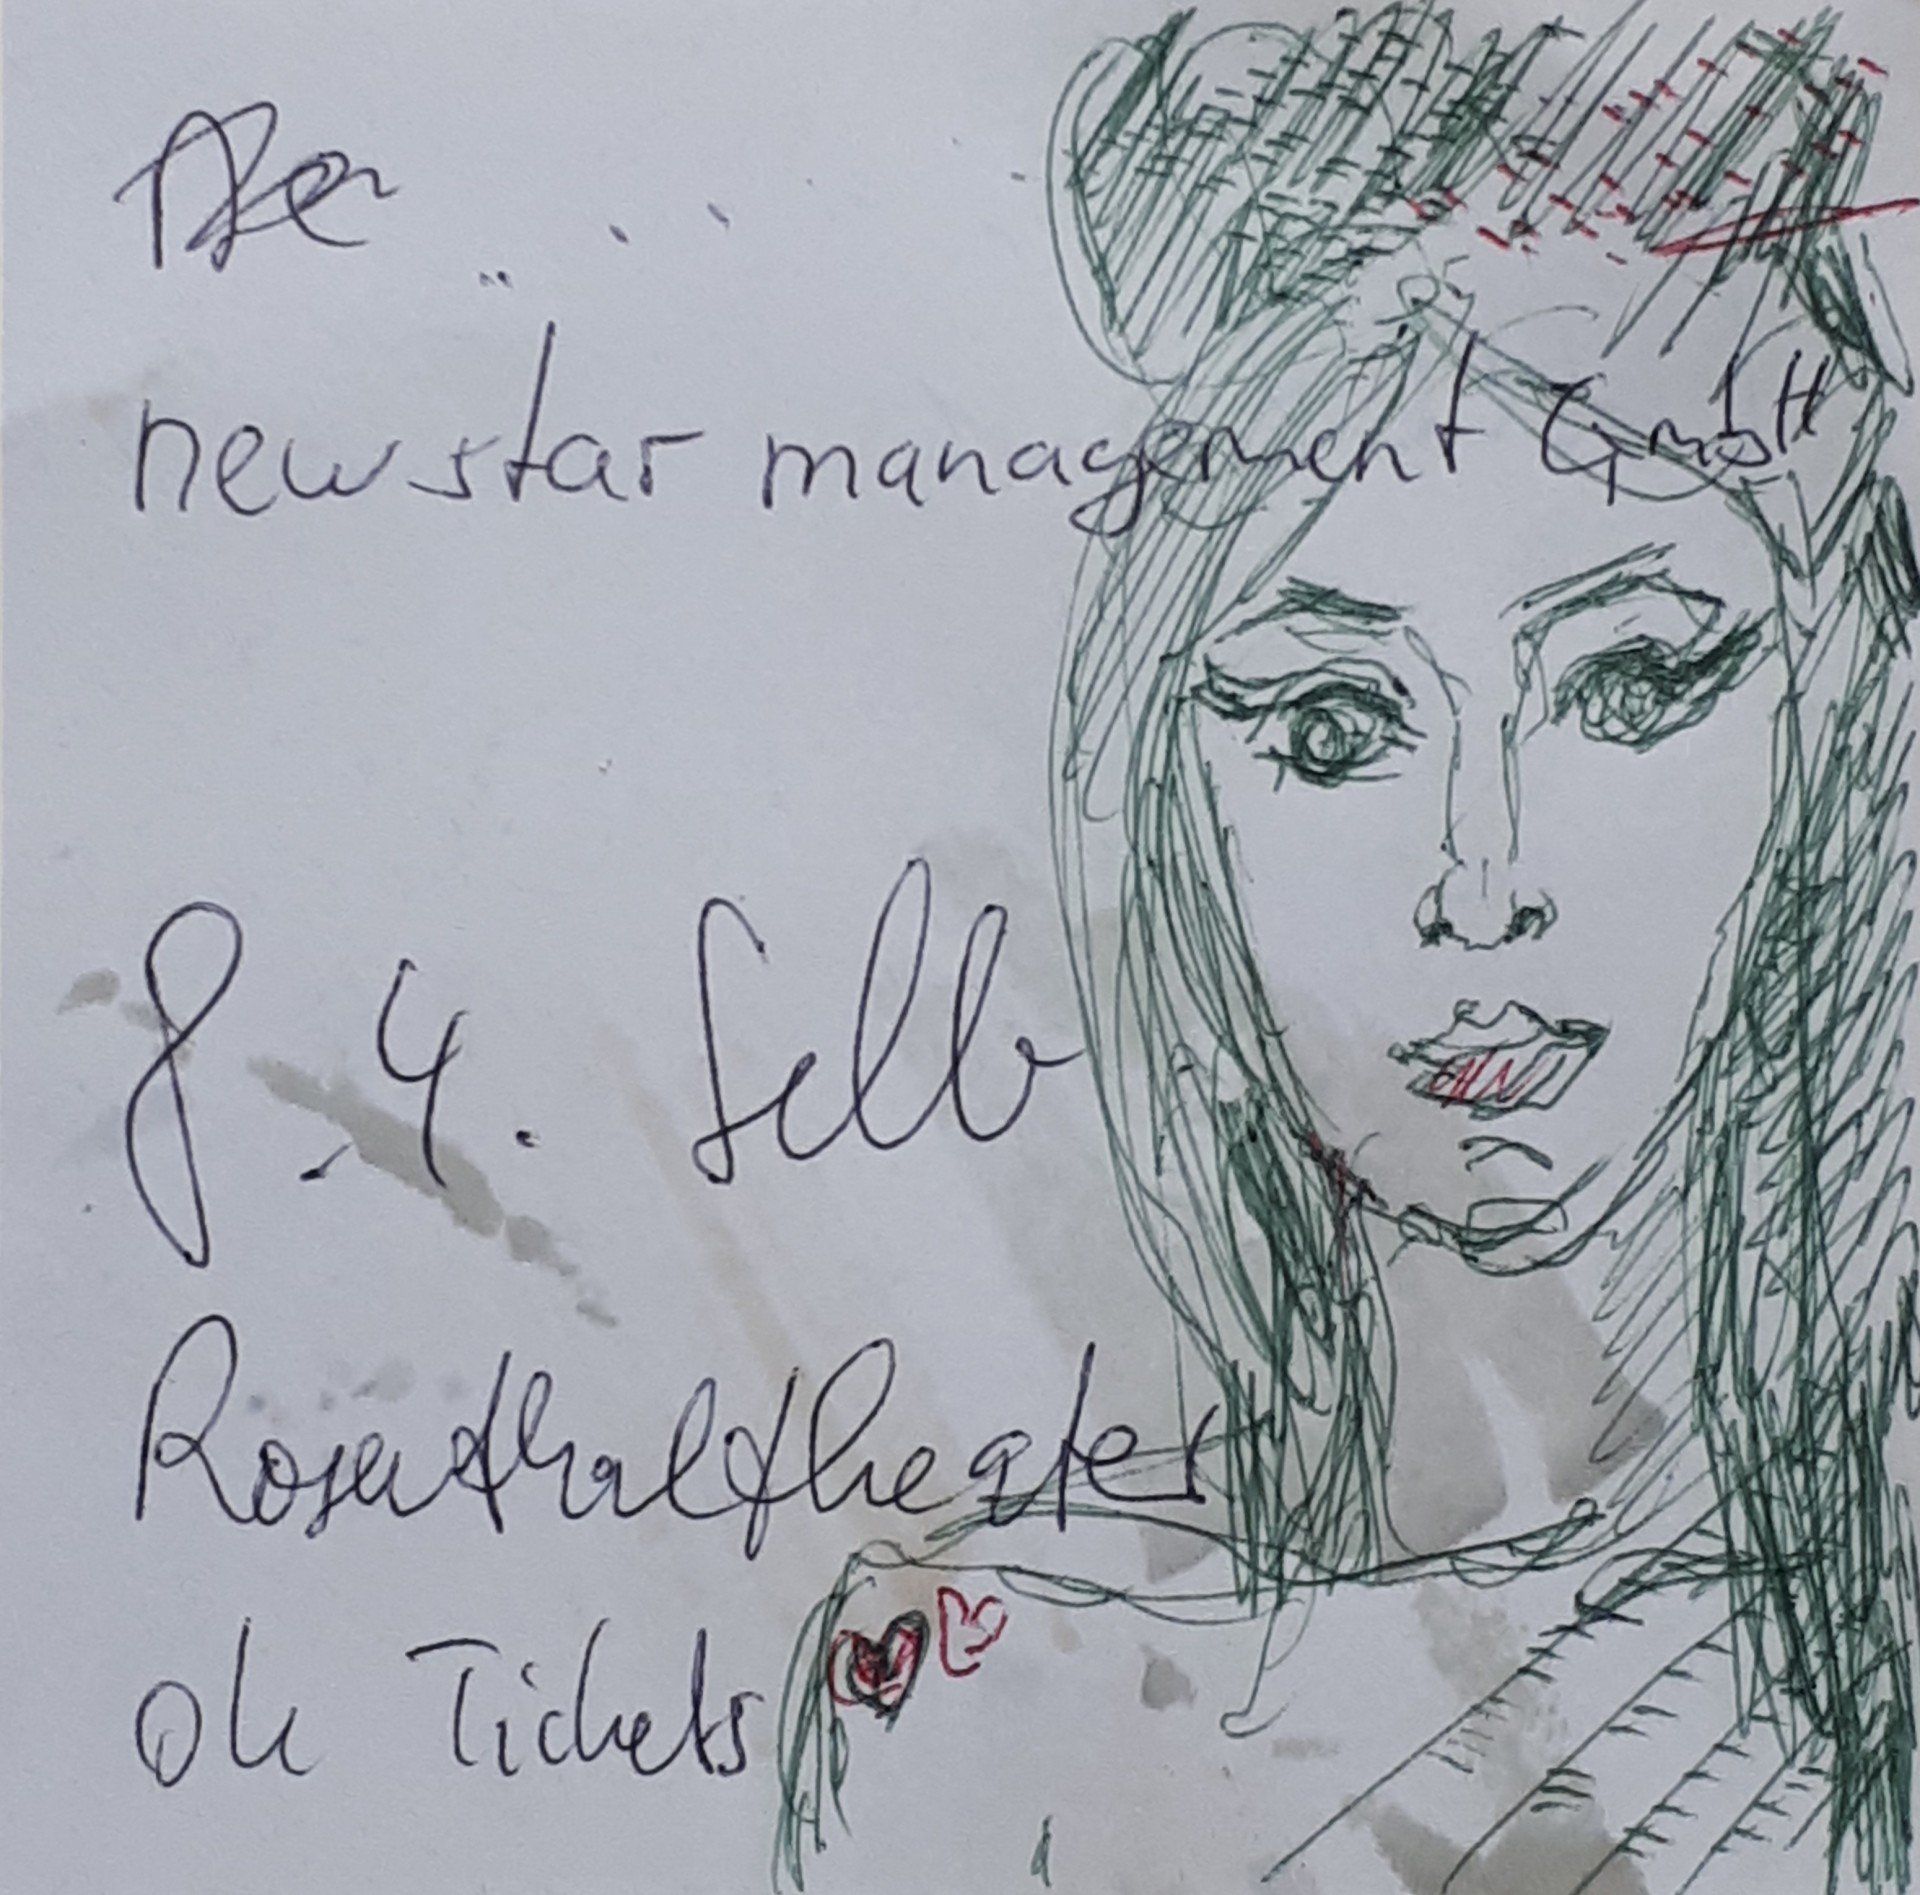 new star management GmbH
8.4. Selb
Rosenthaltheater
ok Tickets